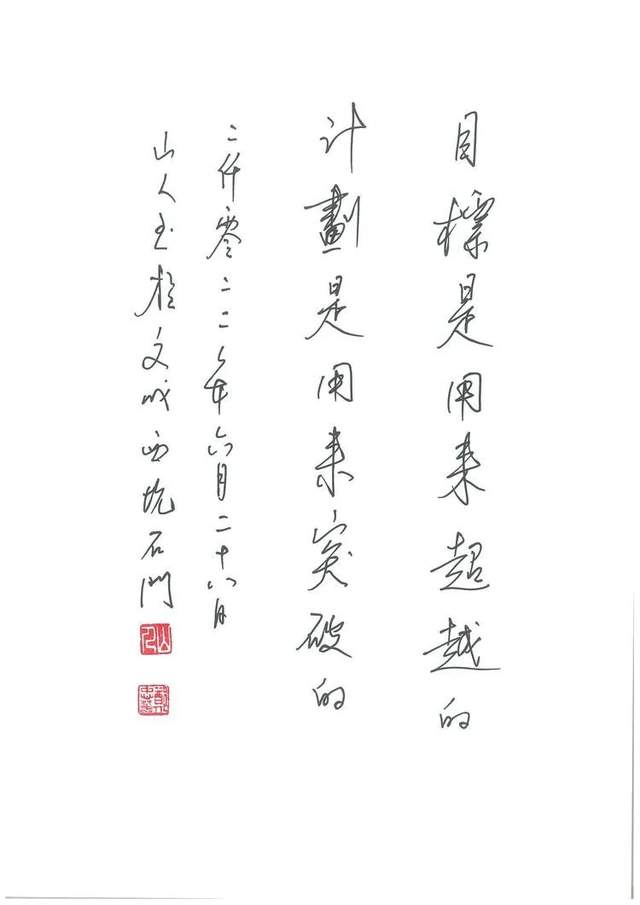 目標是用来超越的
計劃是用来突破的
二仟零二二年六月二十八日
山人书於文成西坑石門
山人